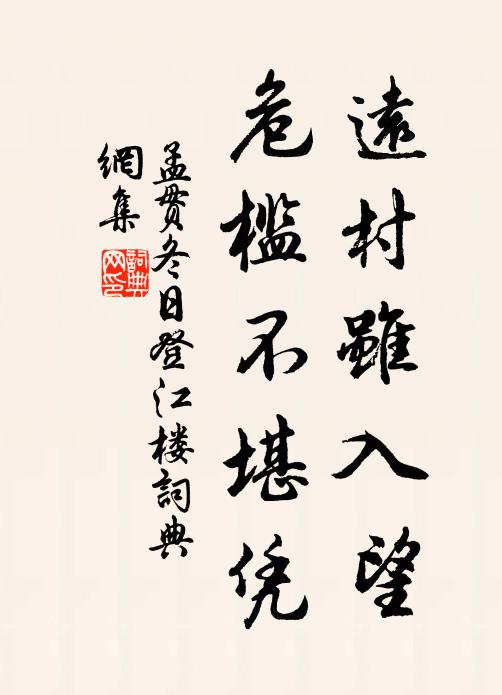 遠村雖入望
危檻不堪凭
孟贯冬日登江楼詞典
網集
詞典
网印